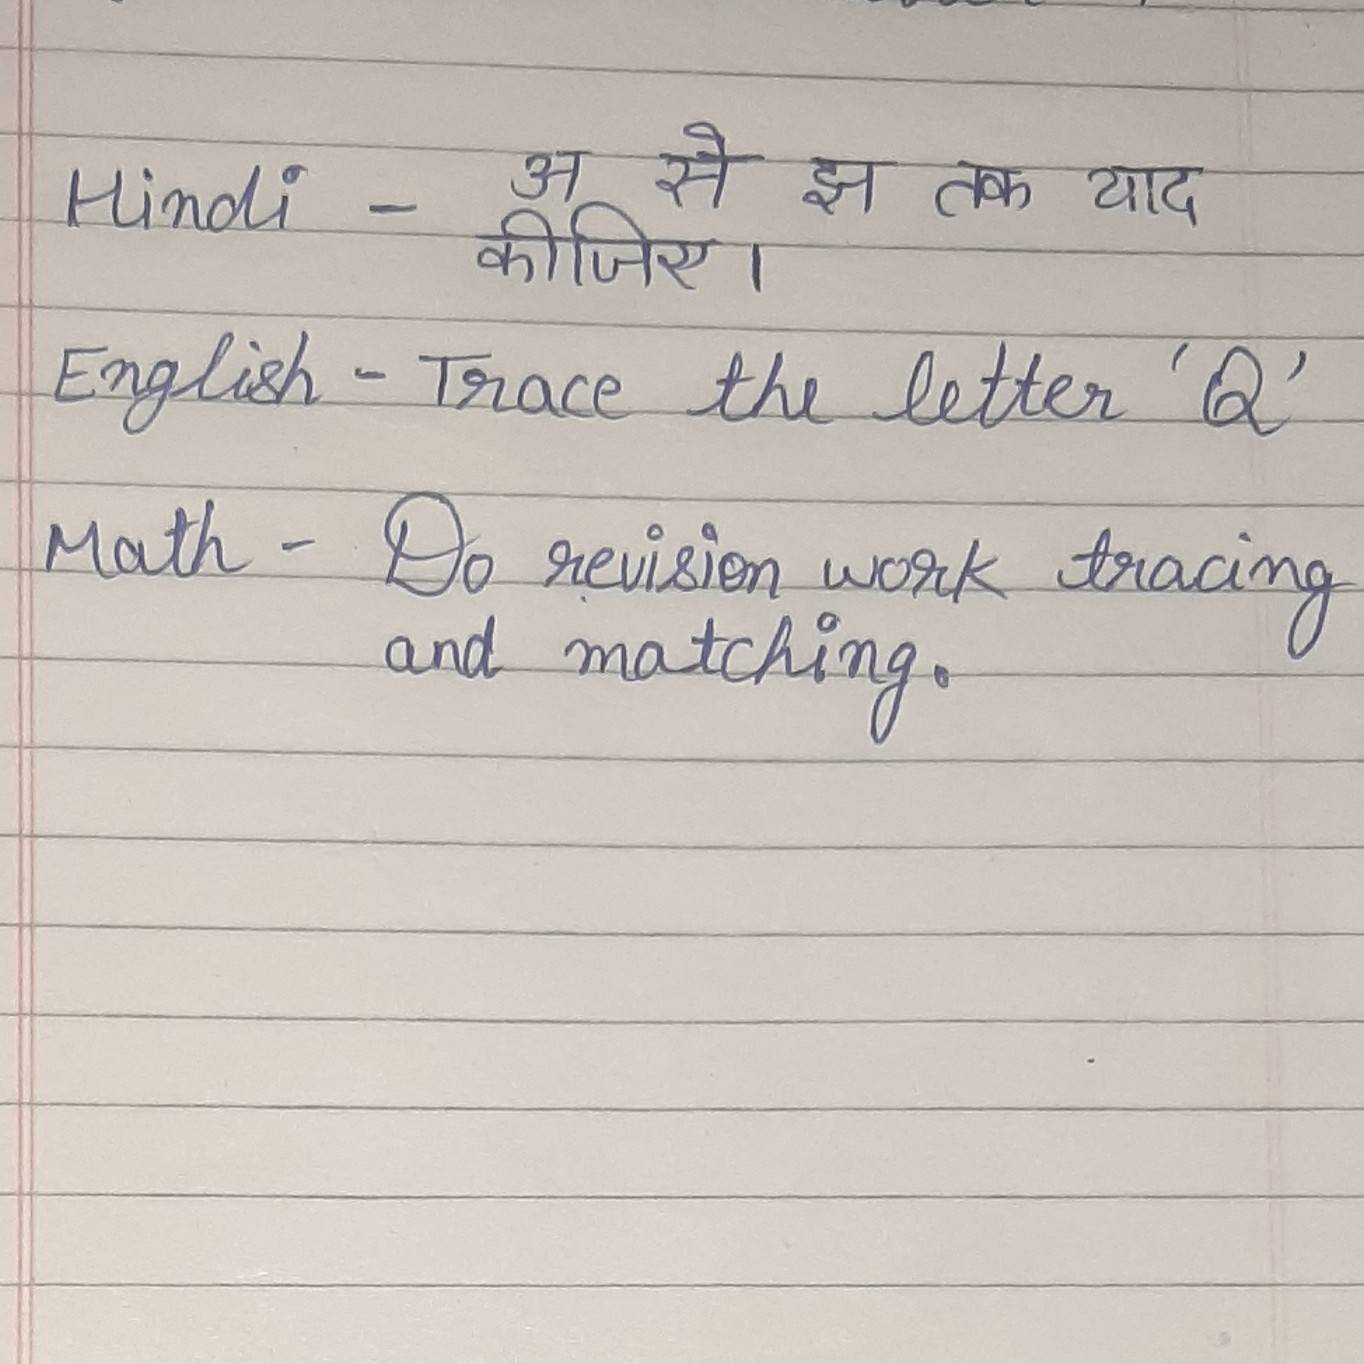 Hindi - अ सै झ तक याद
कीजिए।
English - Trace the letter 'Q'
Math - Do revision work tracing
and matching.